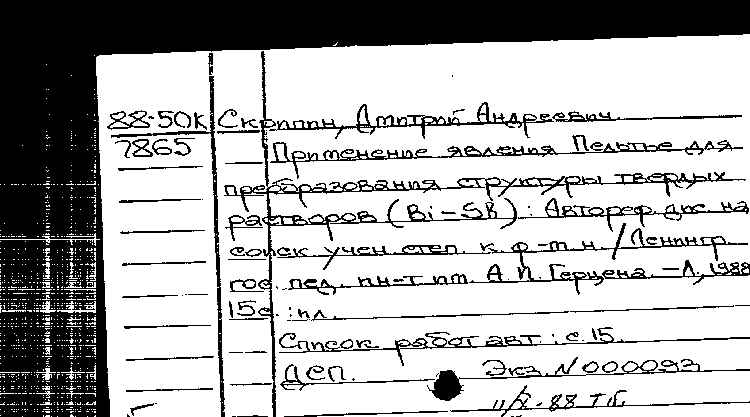 88-50К Скрипин, Дмитрий Андреевич.
7865 Применение явления Пельтье для
преобразования структуры твердых
растворов (Bi-Sb): Автореф. дис. на
соиск. учен. степ. к. ф.-т. н. / Ленингр.
гос. пед. ин-т им. А. И. Герцена. - Л., 1988
15с. : ил.
Список работ авт.: с. 15.
ДСП. Экз. N 000093
11/X-88 Тб.